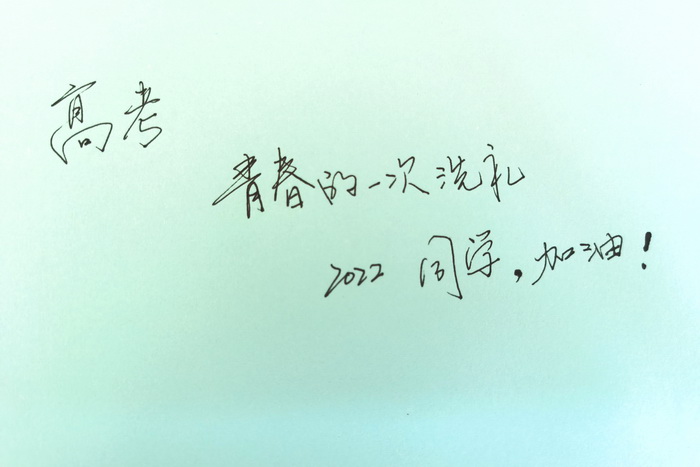 高考
青春的一次洗礼
2022 同学,加油!